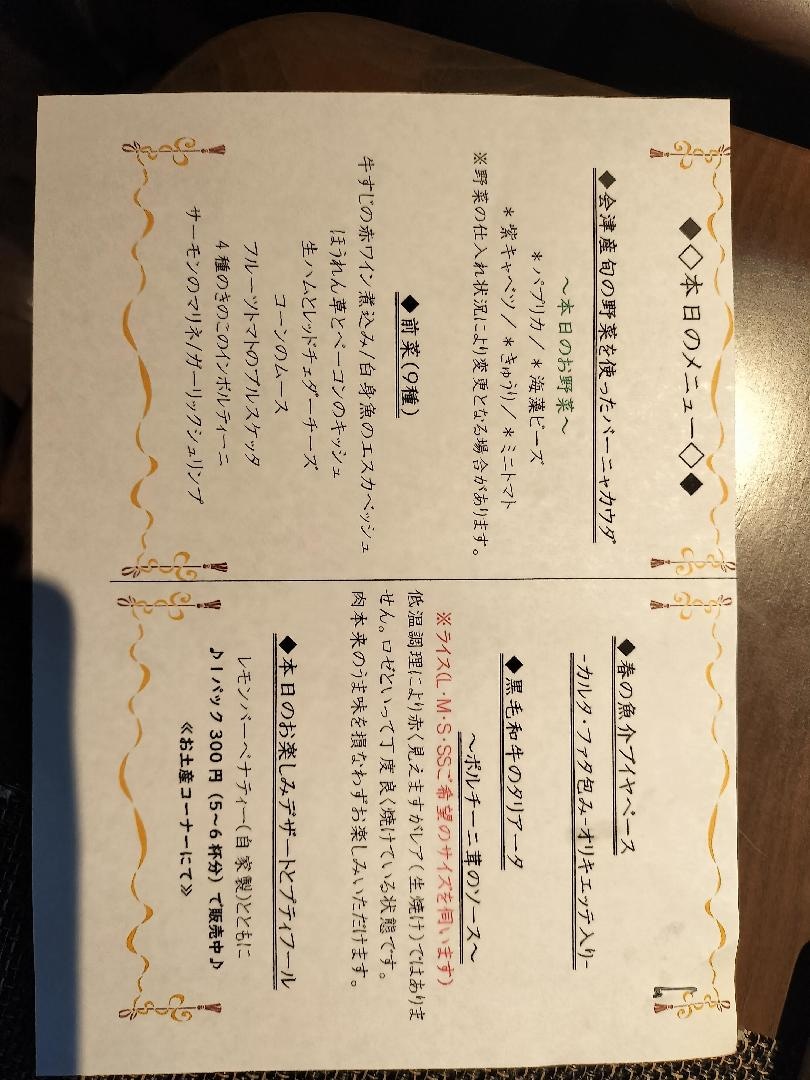 ◆◇本日のメニュー◇◆
◆会津産旬の野菜を使ったバーニャカウダ
～本日のお野菜～
＊パプリカ/＊海藻ビーズ
＊紫キャベツ/＊きゅうり/＊ミニトマト
※野菜の仕入れ状況により変更となる場合があります。
◆前菜(9種)
牛すじの赤ワイン煮込み/白身魚のエスカベッシュ
ほうれん草とベーコンのキッシュ
生ハムとレッドチェダーチーズ
コーンのムース
フルーツトマトのブルスケッタ
4種のきのこのインボルティーニ
サーモンのマリネ/ガーリックシュリンプ
◆春の魚介ブイヤベース
-カルタ・ファタ包み-オリキエッテ入り-
◆黒毛和牛のタリアータ
～ポルチーニ茸のソース～
※ライス(L・M・S・SSご希望のサイズを伺います)
低温調理により赤く見えますがレア(生焼け)ではありま
せん。ロゼといって丁度良く焼けている状態です。
肉本来のうま味を損なわずお楽しみいただけます。
◆本日のお楽しみデザートとプティフール
レモンバーベナティー(自家製)とともに
♪1パック300円（5～6杯分）で販売中♪
≪お土産コーナーにて≫